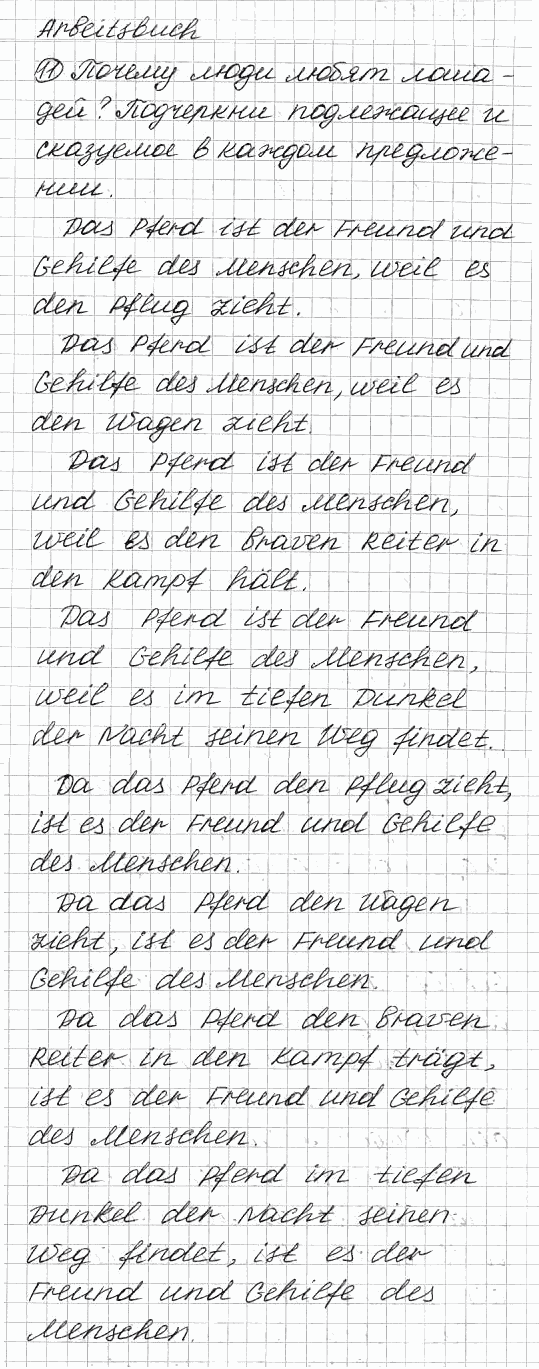 Arbeitsbuch
11 Почему люди любят лоша-
дей? Подчеркни подлежащее и
сказуемое в каждом предложе-
нии.
Das Pferd ist der Freund und
Gehilfe des Menschen, weil es
den Pflug zieht.
Das Pferd ist der Freund und
Gehilfe des Menschen, weil es
den Wagen zieht.
Das Pferd ist der Freund
und Gehilfe des Menschen,
weil es den braven Reiter in
den Kampf hält.
Das Pferd ist der Freund
und Gehilfe des Menschen,
weil es im tiefen Dunkel
der Nacht seinen Weg findet.
Da das Pferd den Pflug zieht,
ist es der Freund und Gehilfe
des Menschen.
Da das Pferd den Wagen
zieht, ist es der Freund und
Gehilfe des Menschen.
Da das Pferd den braven
Reiter in den Kampf trägt,
ist es der Freund und Gehilfe
des Menschen.
Da das Pferd im tiefen
Dunkel der Nacht seinen
Weg findet, ist es der
Freund und Gehilfe des
Menschen.